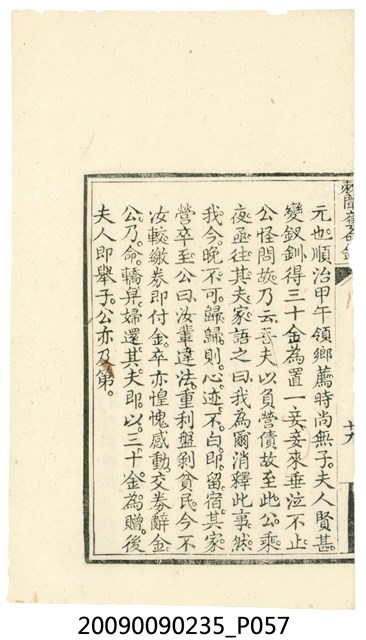 元也。順治甲午領鄉薦時尚無子。夫人賢甚。
變釵釧得三十金為置一妾。妾來垂泣不止。
公怪問故。乃云吾夫以負營債故至此。公乘
夜亟往其夫家語之曰。我為爾消釋此事。然
我今晚不可歸。歸則心迹不白。即留宿其家。
營卒至。公曰汝輩違法。重利盤剝貧民。今不
汝較。繳券即付金。卒亦惶愧感動。交券辭金。
公乃命轎舁婦還其夫。即以三十金為贈。後
夫人即舉子。公亦乃第。
十九
20090090235_P057